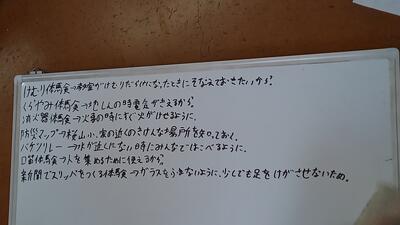 けむり体験→教室がけむりだらけになったときにそなえておきたいから?
くらやみ体験→地しんの時電気がきえるから?
消火器体験→火事の時にすぐ火がけせるように、
防災マップ→桜山小、家の近くのきけんな場所を知っておく、
バケツリレー→水が近くにない時にみんなではこべるように、
口笛体験→人を集めるために使えるから?
新聞でスリッパをつくる体験→ガラスをふまないように、少しでも足をけがさせないため。